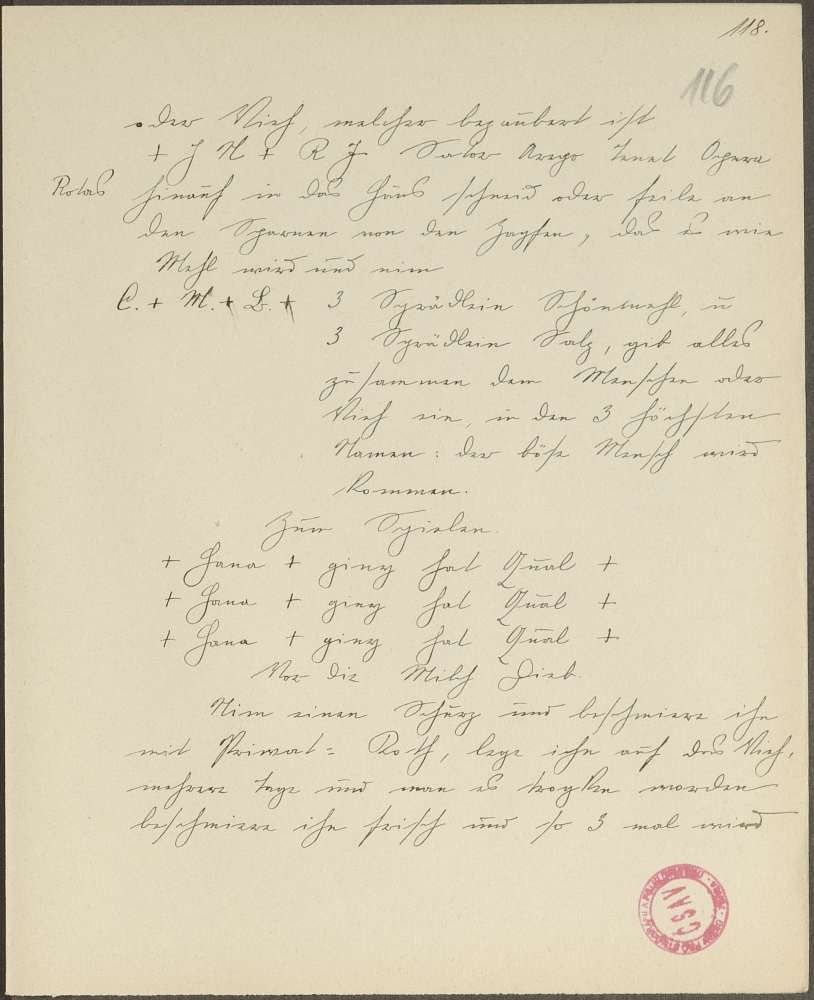 118.
116
oder Vieh, welcher bezaubert ist
+ J N + R J. Sator Arepo Tenet Opera
Rotas hinauf in das Haus schneid oder feile an
den Sparnen von den Zapfen, das es wie
Mehl wird und nim
C. + M. + B. + 3 Sprädlein Schönmehl, u
3 Sprädlein Salz, gib alles
zusammen dem Menschen oder
Vieh ein, in den 3 höchsten
Namen: der böse Mensch wird
kommen.
Zum Spielen.
+ Hana + giny hat Qual +
+ Hana + giny hat Qual +
+ Hana + giny hat Qual +
Vor die Milch Dieb.
Nim einen Schurz und beschmiere ihn
mit Priwat= Koth, lege ihn auf das Vieh,
mehrere Tage und wan es trogken worden
beschmiere ihn frisch und so 3 mal wird
ČSAV